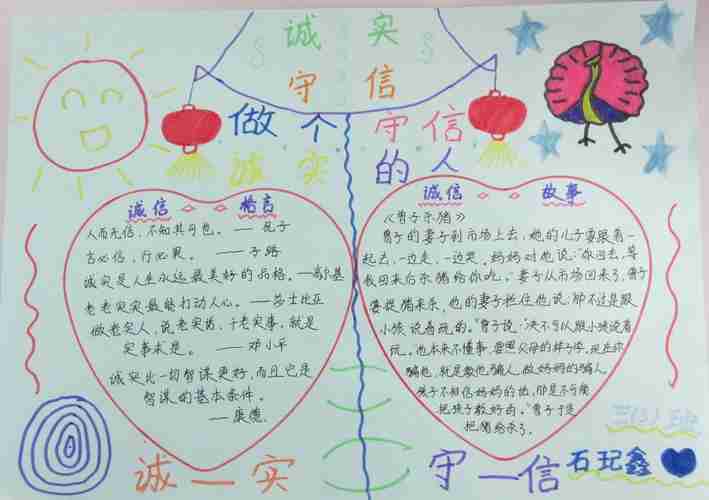 诚 实
守 信
做个守信
诚实的人
诚信 格言
人而无信,不知其可也。——孔子
言必信,行必果。——子路
诚实是人生永远最美好的品格。——高尔基
老老实实最能打动人心。——莎士比亚
做老实人,说老实话,干老实事,就是
实事求是。——邓小平
诚实比一切智谋更好,而且它是
智谋的基本条件。
——康德
诚信 故事
《曾子杀猪》
曾子的妻子到市场上去,她的儿子要跟着一
起去,一边走,一边哭。妈妈对他说:"你回去,等
我回来后杀猪给你吃。"妻子从市场回来了,曾子
要捉猪来杀,他的妻子拦住他说:"那不过是跟
小孩说着玩的。"曾子说:"决不可以跟小孩说着
玩。他本来不懂事,要照父母的样子学,现在你
骗他,就是教他骗人,做妈妈的骗人,
孩子不相信妈妈的话,那是不可能
把孩子教好的。"曾子于是
把猪给杀了。
三(3)班
诚一实 守一信 石玘鑫